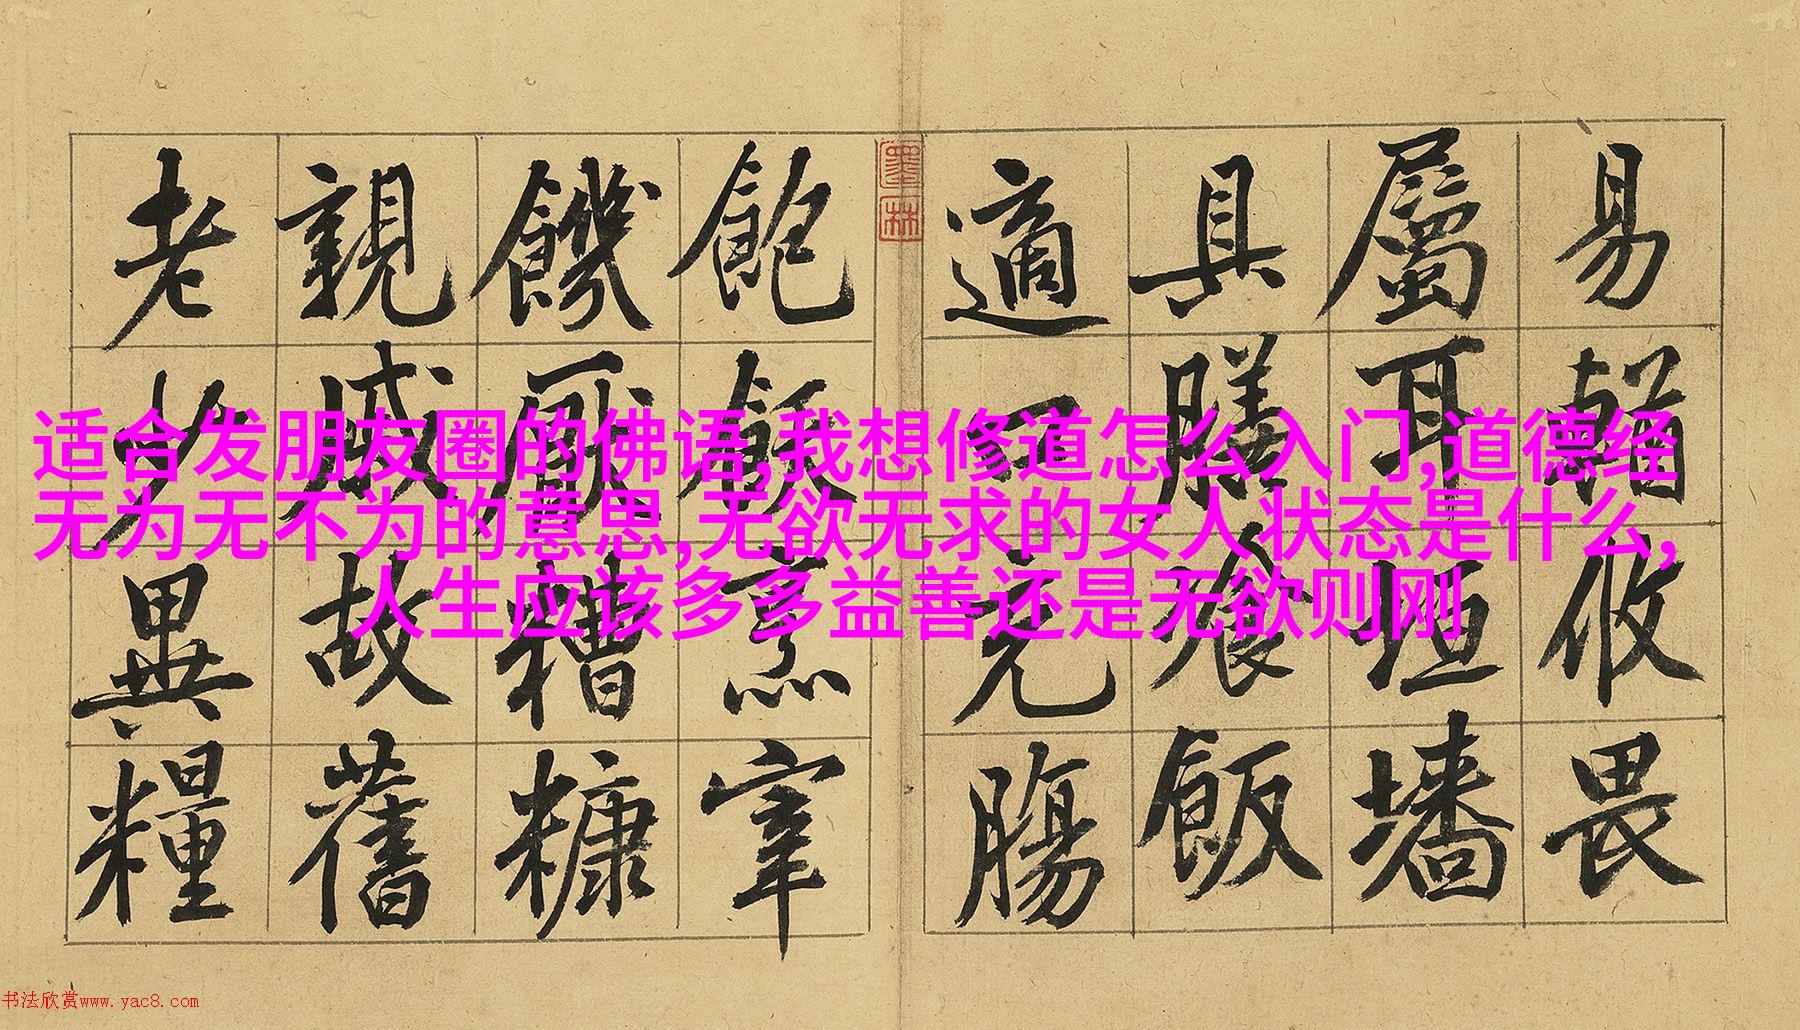 易輶攸畏
屬耳垣墻
具膳飡飯
適口充腸
飽飫烹宰
饑厭糟糠
親戚故舊
老少異糧
墨林
适合发朋友圈的佛语,我想修道怎么入门,道德经
无为无不为的意思,无欲无求的女人状态是什么,
人生应该多多益善还是无欲则刚
书法欣赏www.yac8.com